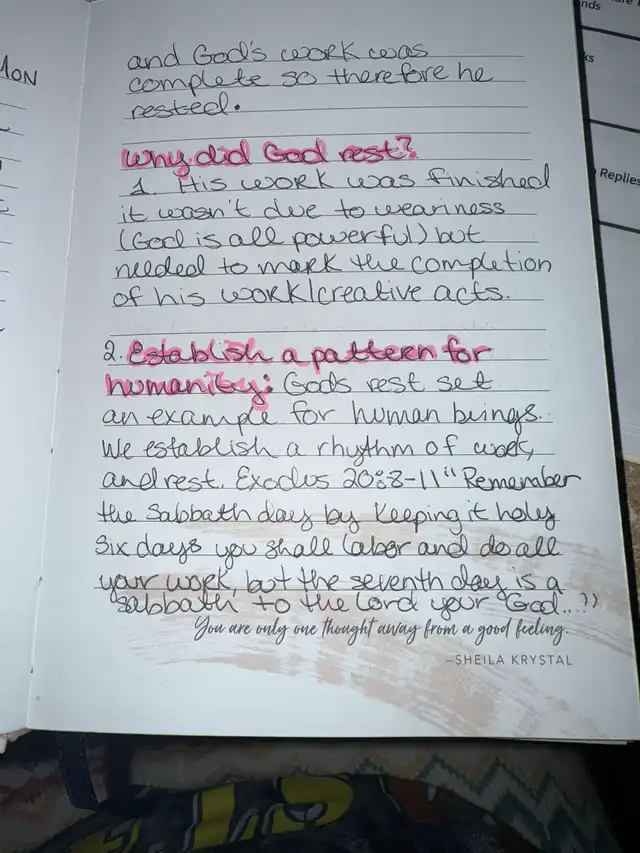 MON
and God's work was
complete so therefore he
rested.
Why did God rest?
1. His work was finished
it wasn't due to weariness
(God is all powerful) but
needed to mark the completion
of his work/creative acts.
2. Establish a pattern for
humanity: Gods rest set
an example for human beings.
We establish a rhythm of work,
and rest. Exodus 20:8-11 "Remember
the Sabbath day by keeping it holy
Six days you shall labor and do all
your work, but the seventh day is a
sabbath to the Lord your God..."
You are only one thought away from a good feeling.
—SHEILA KRYSTAL
nds
ks
Replies